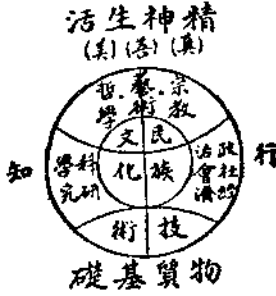 精神生活
(真)(善)(美)
宗教・藝術・哲學
民族
文化
知
科學
研究
政治
社會
經濟
行
技術
物質基礎